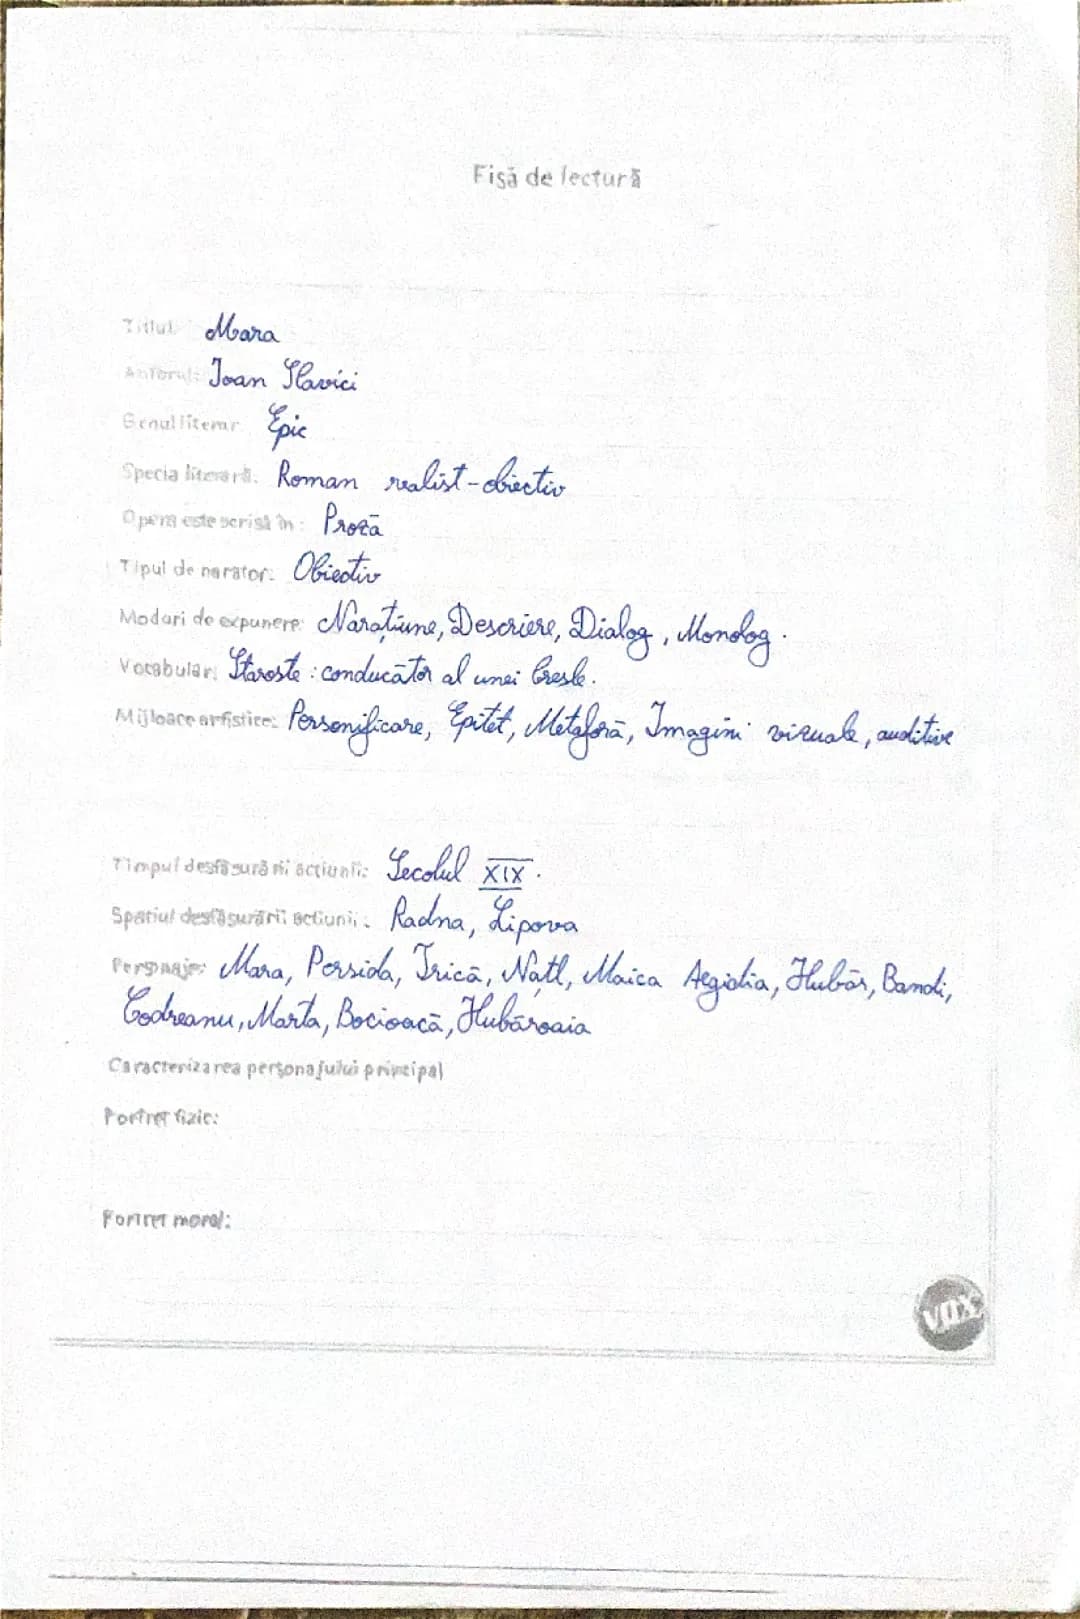 Fișă de lectură
Titlul: Mara
Autorul: Ioan Slavici
Genul literar: Epic
Specia literară: Roman realist-obiectiv
Opera este scrisă în: Proză
Tipul de narator: Obiectiv
Moduri de expunere: Narațiune, Descriere, Dialog, Monolog.
Vocabular: Staroste: conducător al unei bresle.
Mijloace artistice: Personificare, Epitet, Metaforă, Imagini vizuale, auditive
Timpul desfășurării acțiunii: Secolul XIX.
Spațiul desfășurării acțiunii: Radna, Lipova
Personaje: Mara, Persida, Trică, Națl, Maica Aegidia, Hubăr, Bandi,
Codreanu, Marta, Bocioacă, Hubăroaia
Caracterizarea personajului principal
Portret fizic:
Portret moral:
vox